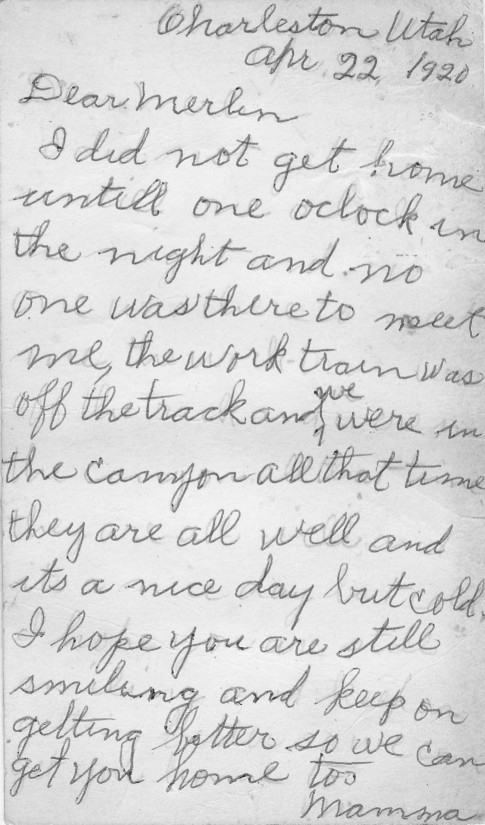 Charleston Utah
Apr. 22, 1920
Dear Merlin
I did not get home
untill one oclock in
the night and no
one was there to meet
me, the work train was
off the track and we were in
the canyon all that time
they are all well and
its a nice day but cold.
I hope you are still
smiling and keep on
getting better so we can
get you home too
Mamma